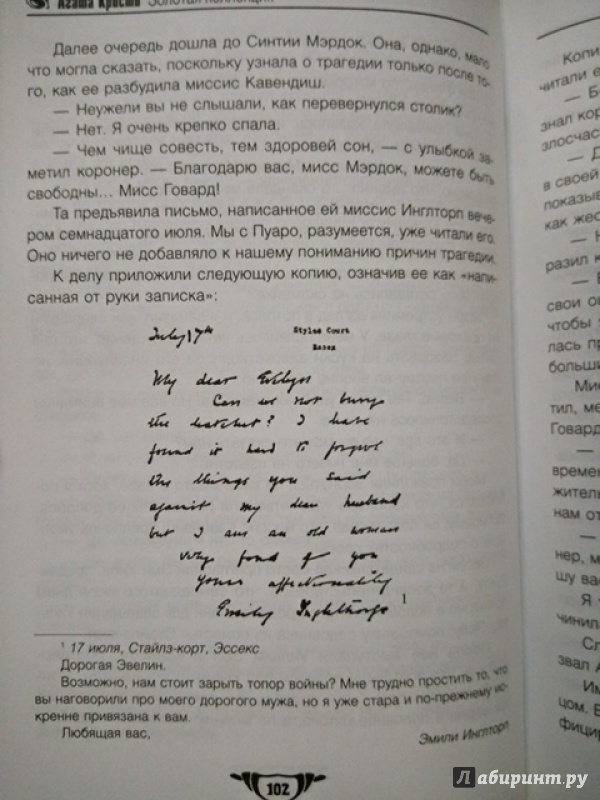 Агата Кристи Золотая коллекция
Далее очередь дошла до Синтии Мэрдок. Она, однако, мало
что могла сказать, поскольку узнала о трагедии только после то-
го, как ее разбудила миссис Кавендиш.
— Неужели вы не слышали, как перевернулся столик?
— Нет. Я очень крепко спала.
— Чем чище совесть, тем здоровей сон, — с улыбкой за-
метил коронер. — Благодарю вас, мисс Мэрдок, можете быть
свободны... Мисс Говард!
Та предъявила письмо, написанное ей миссис Инглторп вече-
ром семнадцатого июля. Мы с Пуаро, разумеется, уже читали его.
Оно ничего не добавляло к нашему пониманию причин трагедии.
К делу приложили следующую копию, означив ее как «напи-
санная от руки записка»:
July 17th
Styles Court
Essex
My dear Evelyn
Can we not bury
the hatchet? I have
found it hard to forgive
the things you said
against my dear husband
but I am an old woman
& very fond of you
Yours affectionately
Emily Inglethorpe 1
1 17 июля, Стайлз-корт, Эссекс
Дорогая Эвелин.
Возможно, нам стоит зарыть топор войны? Мне трудно простить то, что
вы наговорили про моего дорогого мужа, но я уже стара и по-прежнему ис-
кренне привязана к вам.
Любящая вас,
Эмили Инглторп
102
Копи
читали е
— Б
знал кор
злосчас
— Д
в своей
показыв
как жес
— Н
разил к
— Е
свои ош
чтобы
лась пр
больши
Мис
тил, ме
Говард
—
времен
жител
нам от
—
нер, м
шу вас
Я
чинил
Сл
звал А
Им
цом. Е
фицир
Лабиринт.ру